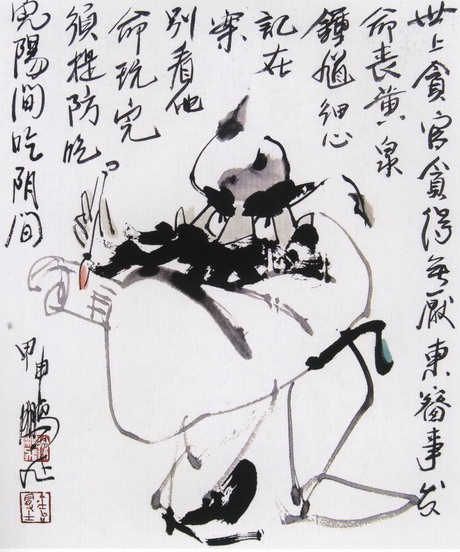 世上貪官貪得无厭東窗事发
命丧黄泉
鍾馗細心
記在
案
别看他
命玩完
須提防吃
完陽间吃阴间
甲申